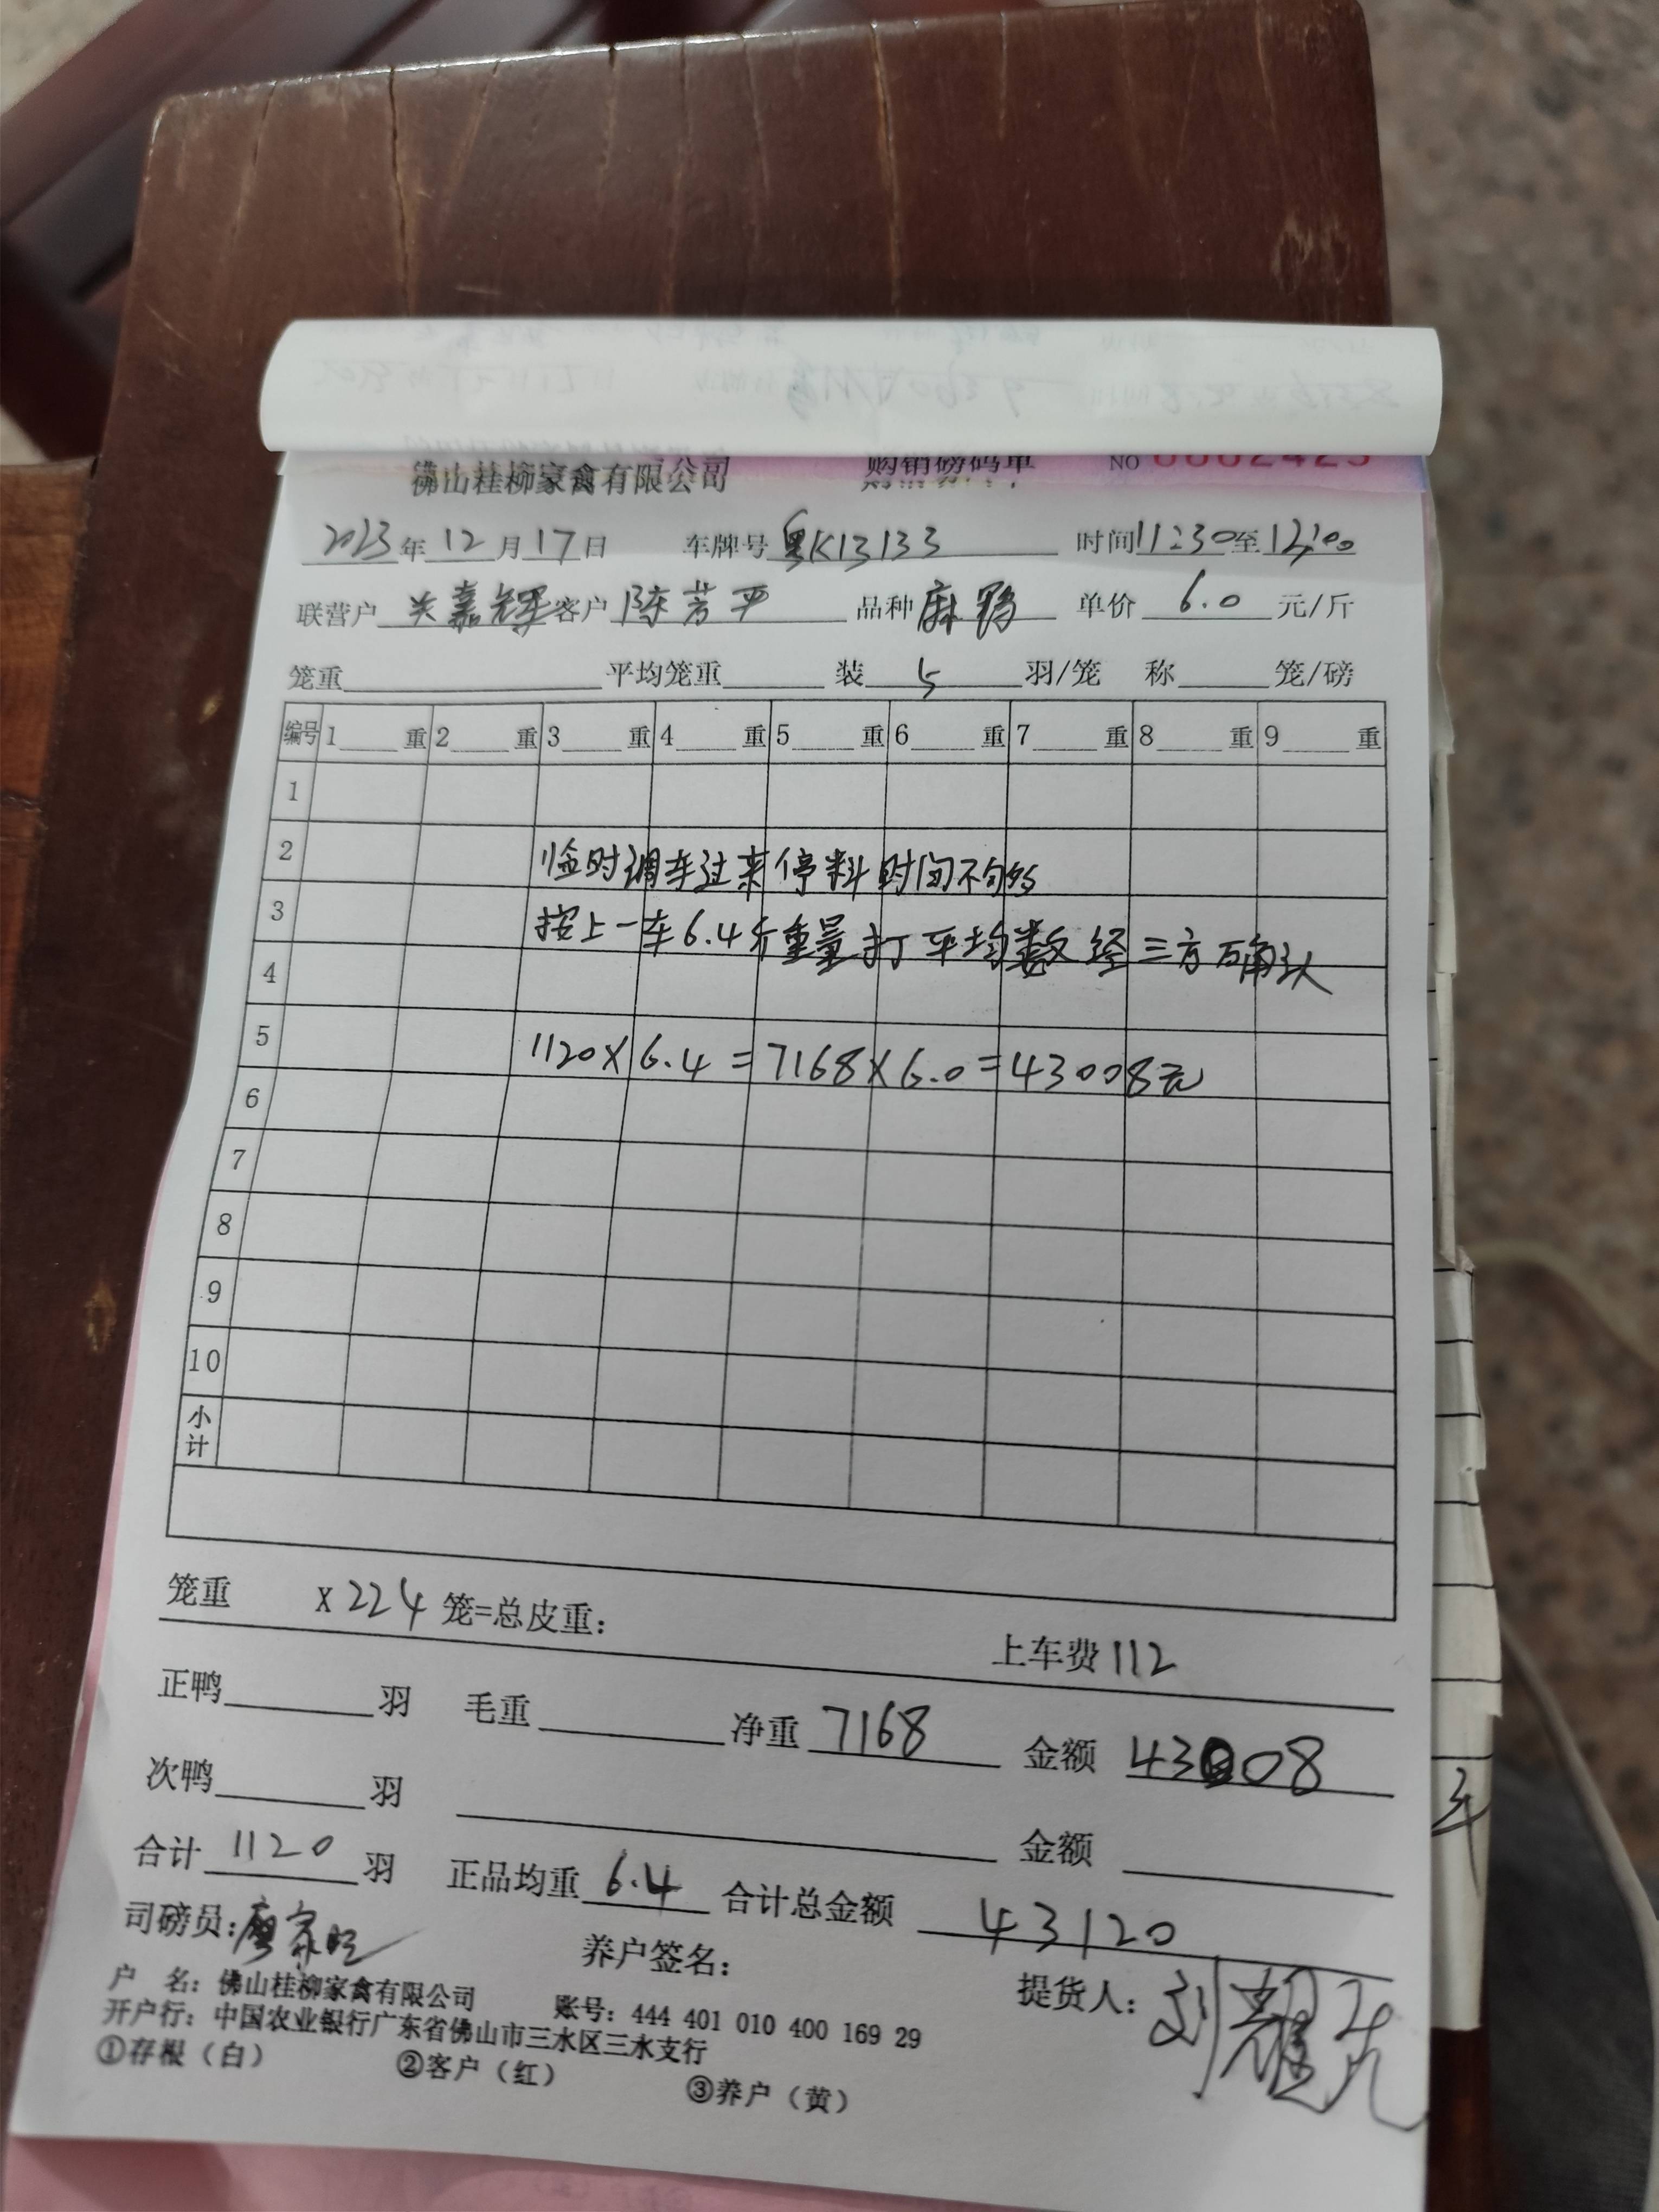 佛山桂柳家禽有限公司 购销磅码单 NO 0002425
2023年12月17日 车牌号 粤K13133 时间 11:30至12:00
联营户 关嘉辉 客户 陈芳平 品种 麻鸭 单价 6.0 元/斤
笼重 平均笼重 装 5 羽/笼 称 笼/磅
编号 1 重 2 重 3 重 4 重 5 重 6 重 7 重 8 重 9 重
1
2
临时调车过来停料时间不够
3
按上一车6.4斤重量打平均数经三方确认
4
5
1120×6.4=7168×6.0=43008元
6
7
8
9
10
小计
笼重 x224 笼=总皮重:
上车费 112
正鸭 羽 毛重 净重 7168 金额 43008
次鸭 羽 金额
合计 1120 羽 正品均重 6.4 合计总金额 43120
司磅员: 廖家旺 养户签名: 提货人: 刘
户 名: 佛山桂柳家禽有限公司 账号: 444 401 010 400 169 29
开户行: 中国农业银行广东省佛山市三水区三水支行
①存根（白） ②客户（红） ③养户（黄）